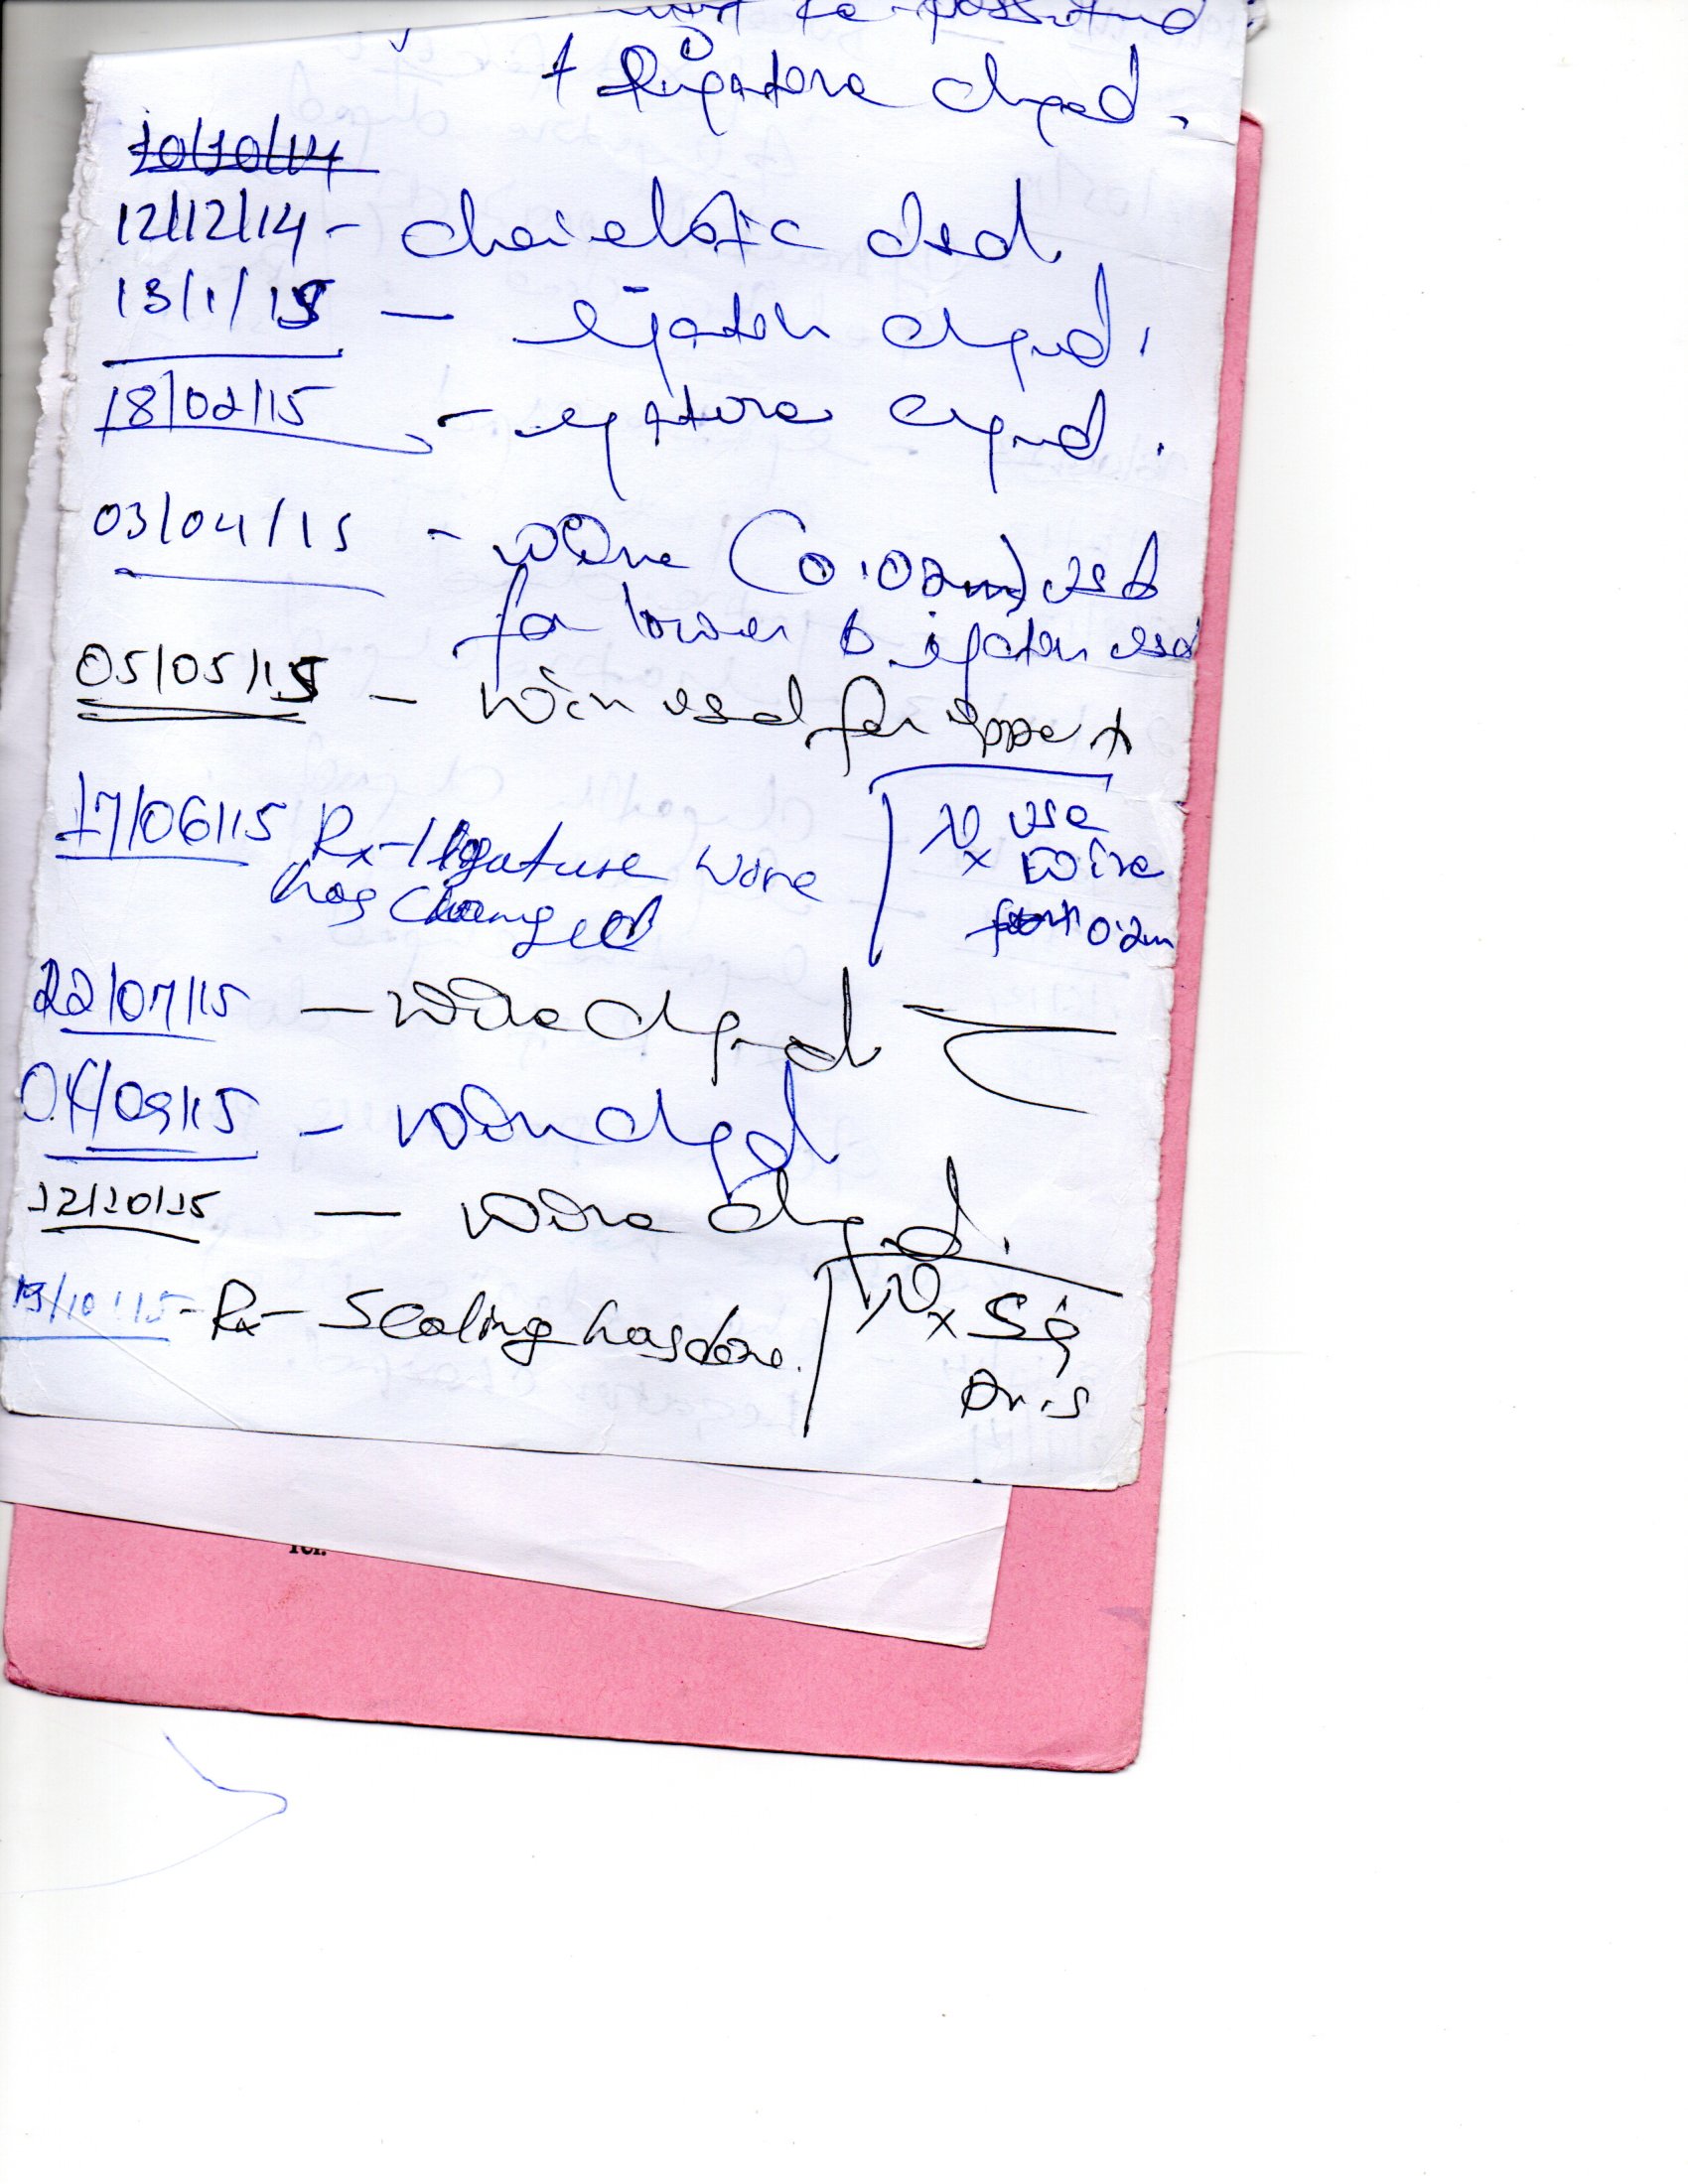 + Ligature chged.
10/10/14
12/12/14 - chain elastic used,
13/1/15 — ligature chged.
18/02/15 - ligature chged.
03/04/15 - wire (0.02m) used
for lower & ligature used
05/05/15 - wire used for upper
17/06/15 Rx - ligature wire
has changed
Nx use
wire
0.2m
22/07/15 — wire chged
04/09/15 - wire chgd
12/10/15 — wire chged.
13/10/15 - Rx - Scaling has done.
Nx
Tel.